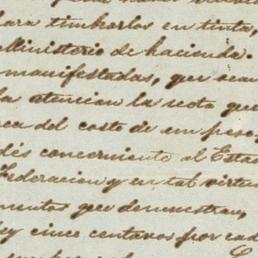 para timbrarlos en tinta,
Ministerio de hacienda.
manifestadas, que sean
la atencion la nota que
del costo de un peso
concerniente al Estad
Federacion y en tal virtud
mentos que demuestran,
y cinco centavos por cad